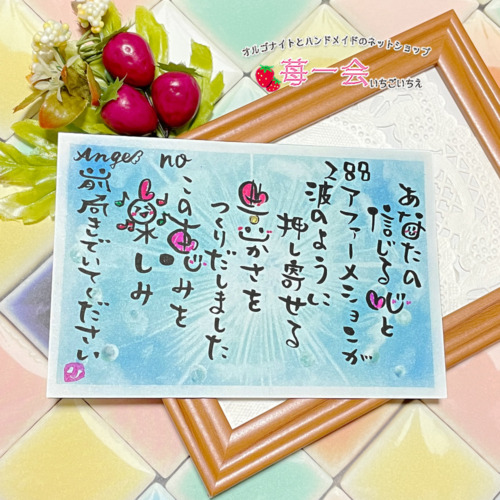 オルゴナイトとハンドメイドのネットショップ
苺一会
いちごいちえ
あなたの
信じる心と
88
アファーメションが
波のように
押し寄せる
豊かさを
つくりだしました
この恵みを
楽しみ
前居ていてください
Angel no